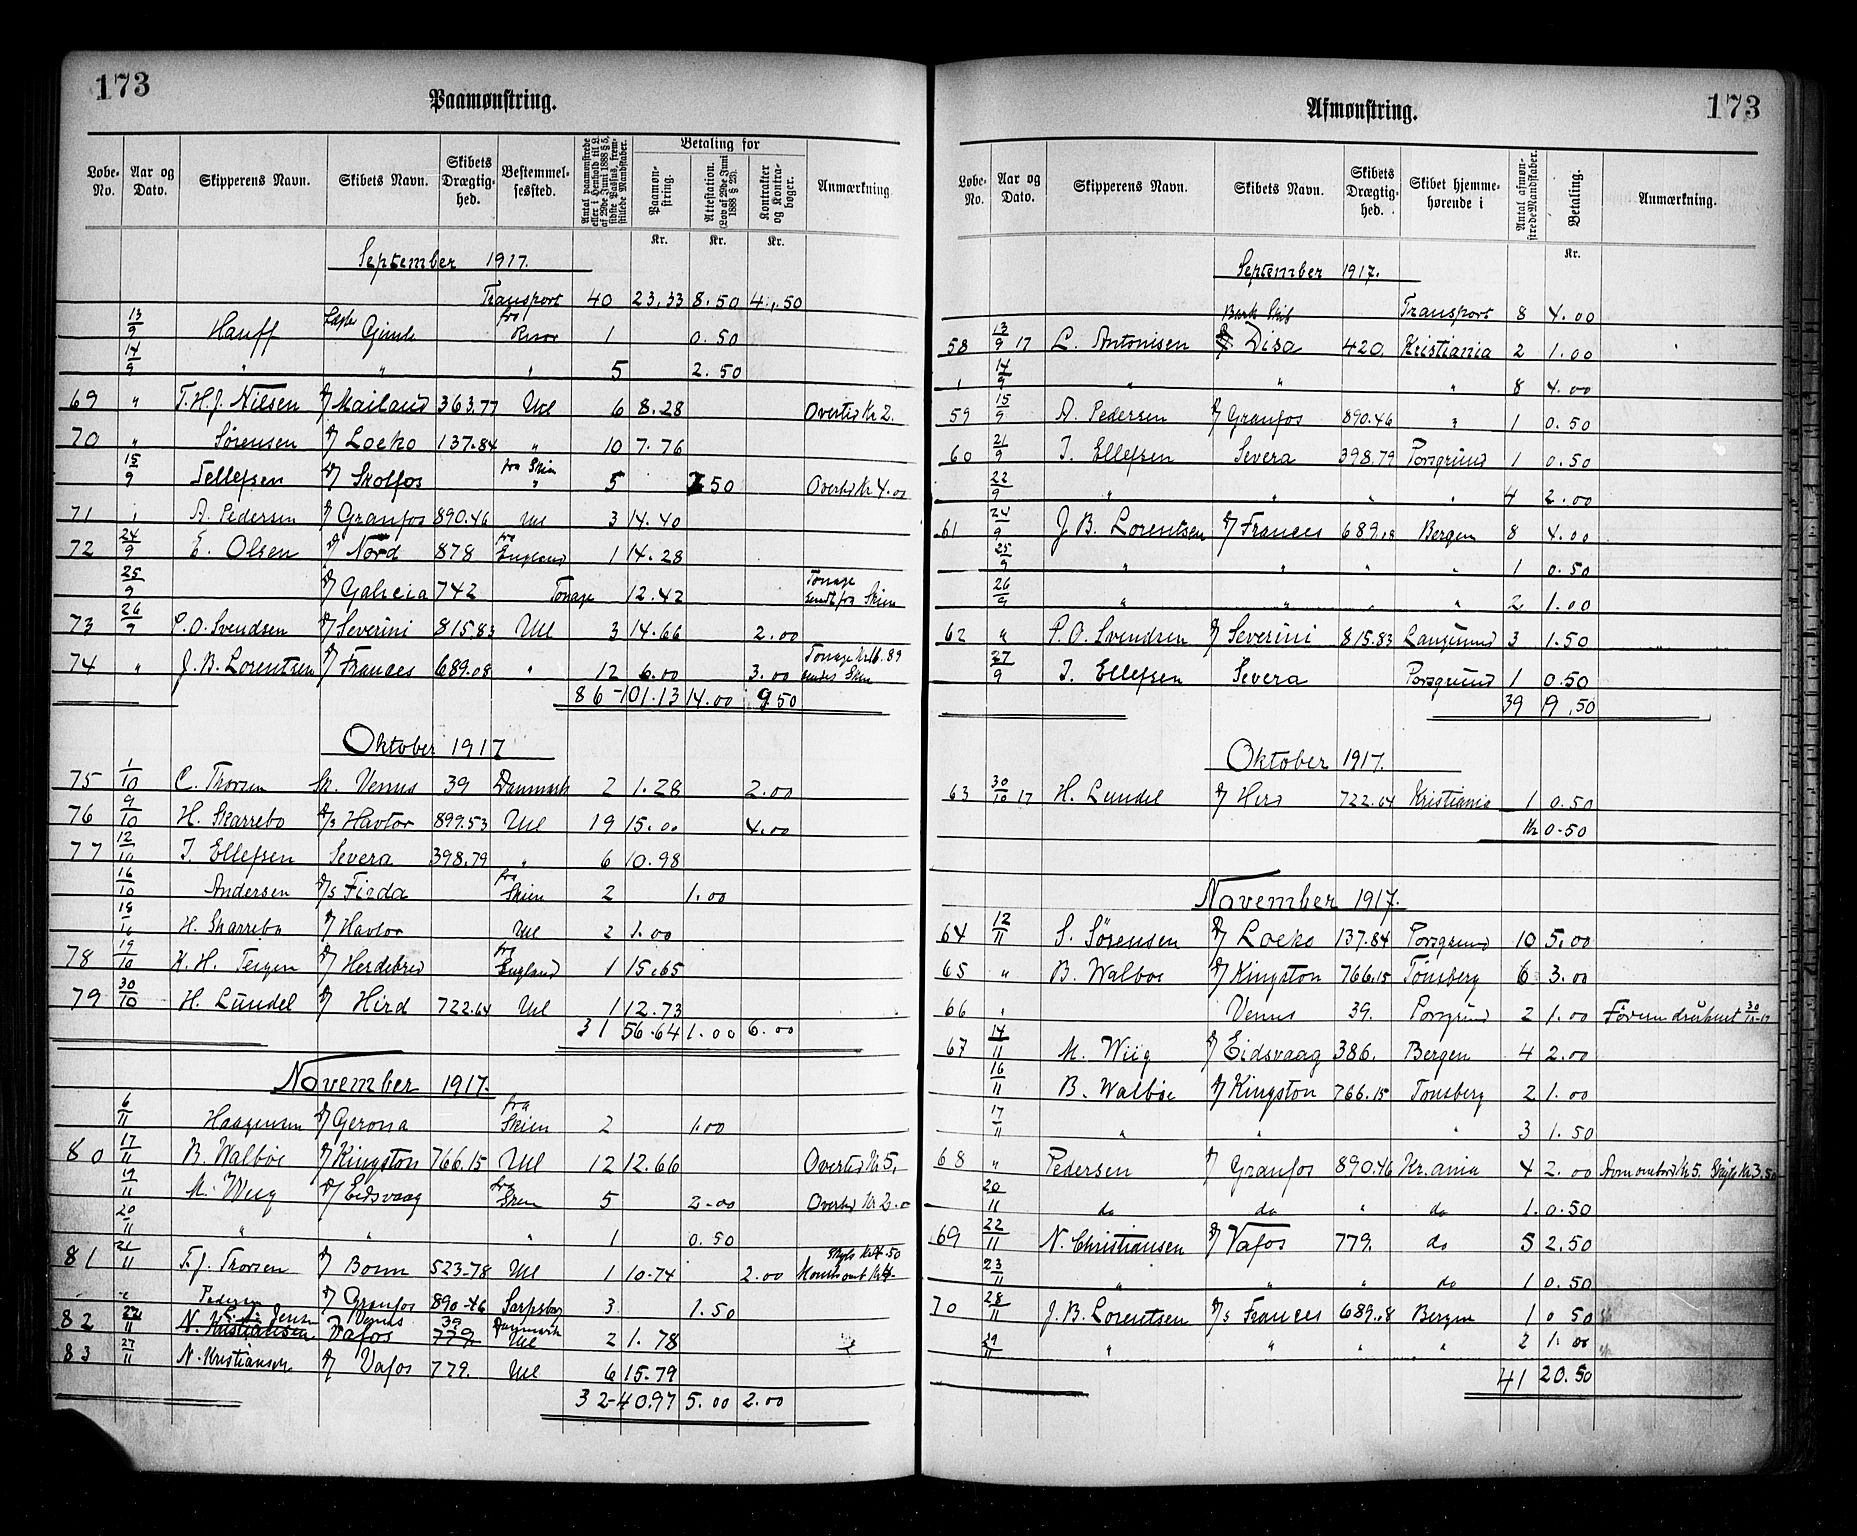 173
Paamønstring.
Løbe-No. | Aar og Dato. | Skipperens Navn. | Skibets Navn. | Skibets Drægtighed. | Bestemmelsessted. | Antal paamønstrede eller i Henhold til L. af 29de Juni 1888 § 5, sidste Passus, fremstillede Mandskaber. | Betaling for Paamønstring. Kr. | Attestation. (Lov af 29de Juni 1888 § 23). Kr. | Kontrakter og Kontrabøger. Kr. | Anmærkning
September 1917.
Transport 40 23,33 8.50 4,50
13/9 Hauff Gimle fra Risør 1 0.50
14/9 " " " 5 2.50
69 " T.H.J. Nilsen Mailand 363.77 Utl 6 8.28 Overtid Kr 2.
70 " Sørensen Loeko 137.84 " 10 7.76
15/9 Tellefsen Skotfos fra Skien 5 2.50 Overtid Kr 4.00
71 " A. Pedersen Granfos 890.46 Utl 3 14.40
72 24/9 E. Olsen Nord 878 fra England 1 14.28
25/9 Galicia 742 Tonage 12.42 Tonage sendt fra Skien
73 26/9 P.O. Svendsen Severini 815.83 Utl 3 14.66 2.00
74 " J.B. Lorentsen Frances 689.08 " 12 6.00 3.00 Tonage Skien
86 - 101.13 14.00 9.50
Oktober 1917
75 1/10 C. Thorsen Sk. Venus 39 Danmark 2 1.28 2.00
76 9/10 H. Skarrebo D/S Havtor 899.53 Utl 19 15.00 4.00
77 12/10 I. Ellefsen Severa 398.79 " 6 10.98
16/10 Andersen D/S Firda fra Skien 2 1.00
18/10 H. Skarrebo Havtor Utl 2 1.00
78 19/10 K.H. Teigen Herdebred fra England 1 15.65
79 30/10 H. Lundel Hird 722.64 Utl 1 12.73
31 56.64 1.00 6.00
November 1917.
6/11 Haagensen Gerona fra Skien 2 1.00
80 17/11 B. Walbøe Kingston 766.15 Utl 12 12.66 Overtid Kr 5,
19/11 M. Wiig Eidsvaag fra Skien 5 2.00 Overtid Kr 2.0
20/11 " " " 1 0.50
81 21/11 T.J. Thorsen Bonn 523-78 Utl 1 10-74 2.00
" Pedersen Granfos 890-46 Sarpsborg 3 1.50
Jensen Venus 39 Danmark
82 22/11 N. Kristiansen Vafos 779 Utl 2 1.78
83 27/11 N. Kristiansen Vafos 779. Utl 6 15.79
32 - 40.97 5.00 2.00
173
Afmønstring.
Løbe-No. | Aar og Dato. | Skipperens Navn. | Skibets Navn. | Skibets Drægtighed. | Skibet hjemmehørende i | Antal afmønstrede Mandskaber. | Betaling. Kr. | Anmærkning.
September 1917.
Bark Skib Transport 8 4.00
58 13/9 17 L. Antonisen Disa 420. Kristiania 2 1.00
14/9 " " " 8 4.00
59 15/9 A. Pedersen Granfos 890.46 " 1 0.50
60 21/9 I. Ellefsen Severa 398.79 Porsgrund 1 0.50
22/9 " " " " 4 2.00
61 24/9 J.B. Lorentsen Frances 689.08 Bergen 8 4.00
25/9 " " " " 1 0.50
26/9 " " " " 2 1.00
62 " P.O. Svendsen Severini 815.83 Langesund 3 1.50
27/9 I. Ellefsen Severa Porsgrund 1 0.50
39 19.50
Oktober 1917.
63 30/10 17 H. Lundel Hird 722.64 Kristiania 1 0.50
Kr 0-50
November 1917.
64 12/11 S. Sørensen Loeko 137.84 Porsgrund 10 5.00
65 " B. Walboe Kingston 766.15 Tönsberg 6 3.00
66 " Venus 39. Porsgrund 2 1.00 Føreren druknet 30/10-17
67 14/11 M. Wiig Eidsvaag 386. Bergen 4 2.00
16/11 B. Walbøe Kingston 766.15 Tönsberg 2 1.00
17/11 " " " 3 1.50
68 " Pedersen Granfos 890.46 Kr.ania 4 2.00
20/11 do do " do 1. 0.50
69 22/11 N. Christiansen Vafos 779. do 5 2.50
23/11 " " " do 1 0.50
70 28/11 J.B. Lorentsen D/S Frances 689.08 Bergen 1 0 50
29/11 " " " " 2 1.00
41 20.50